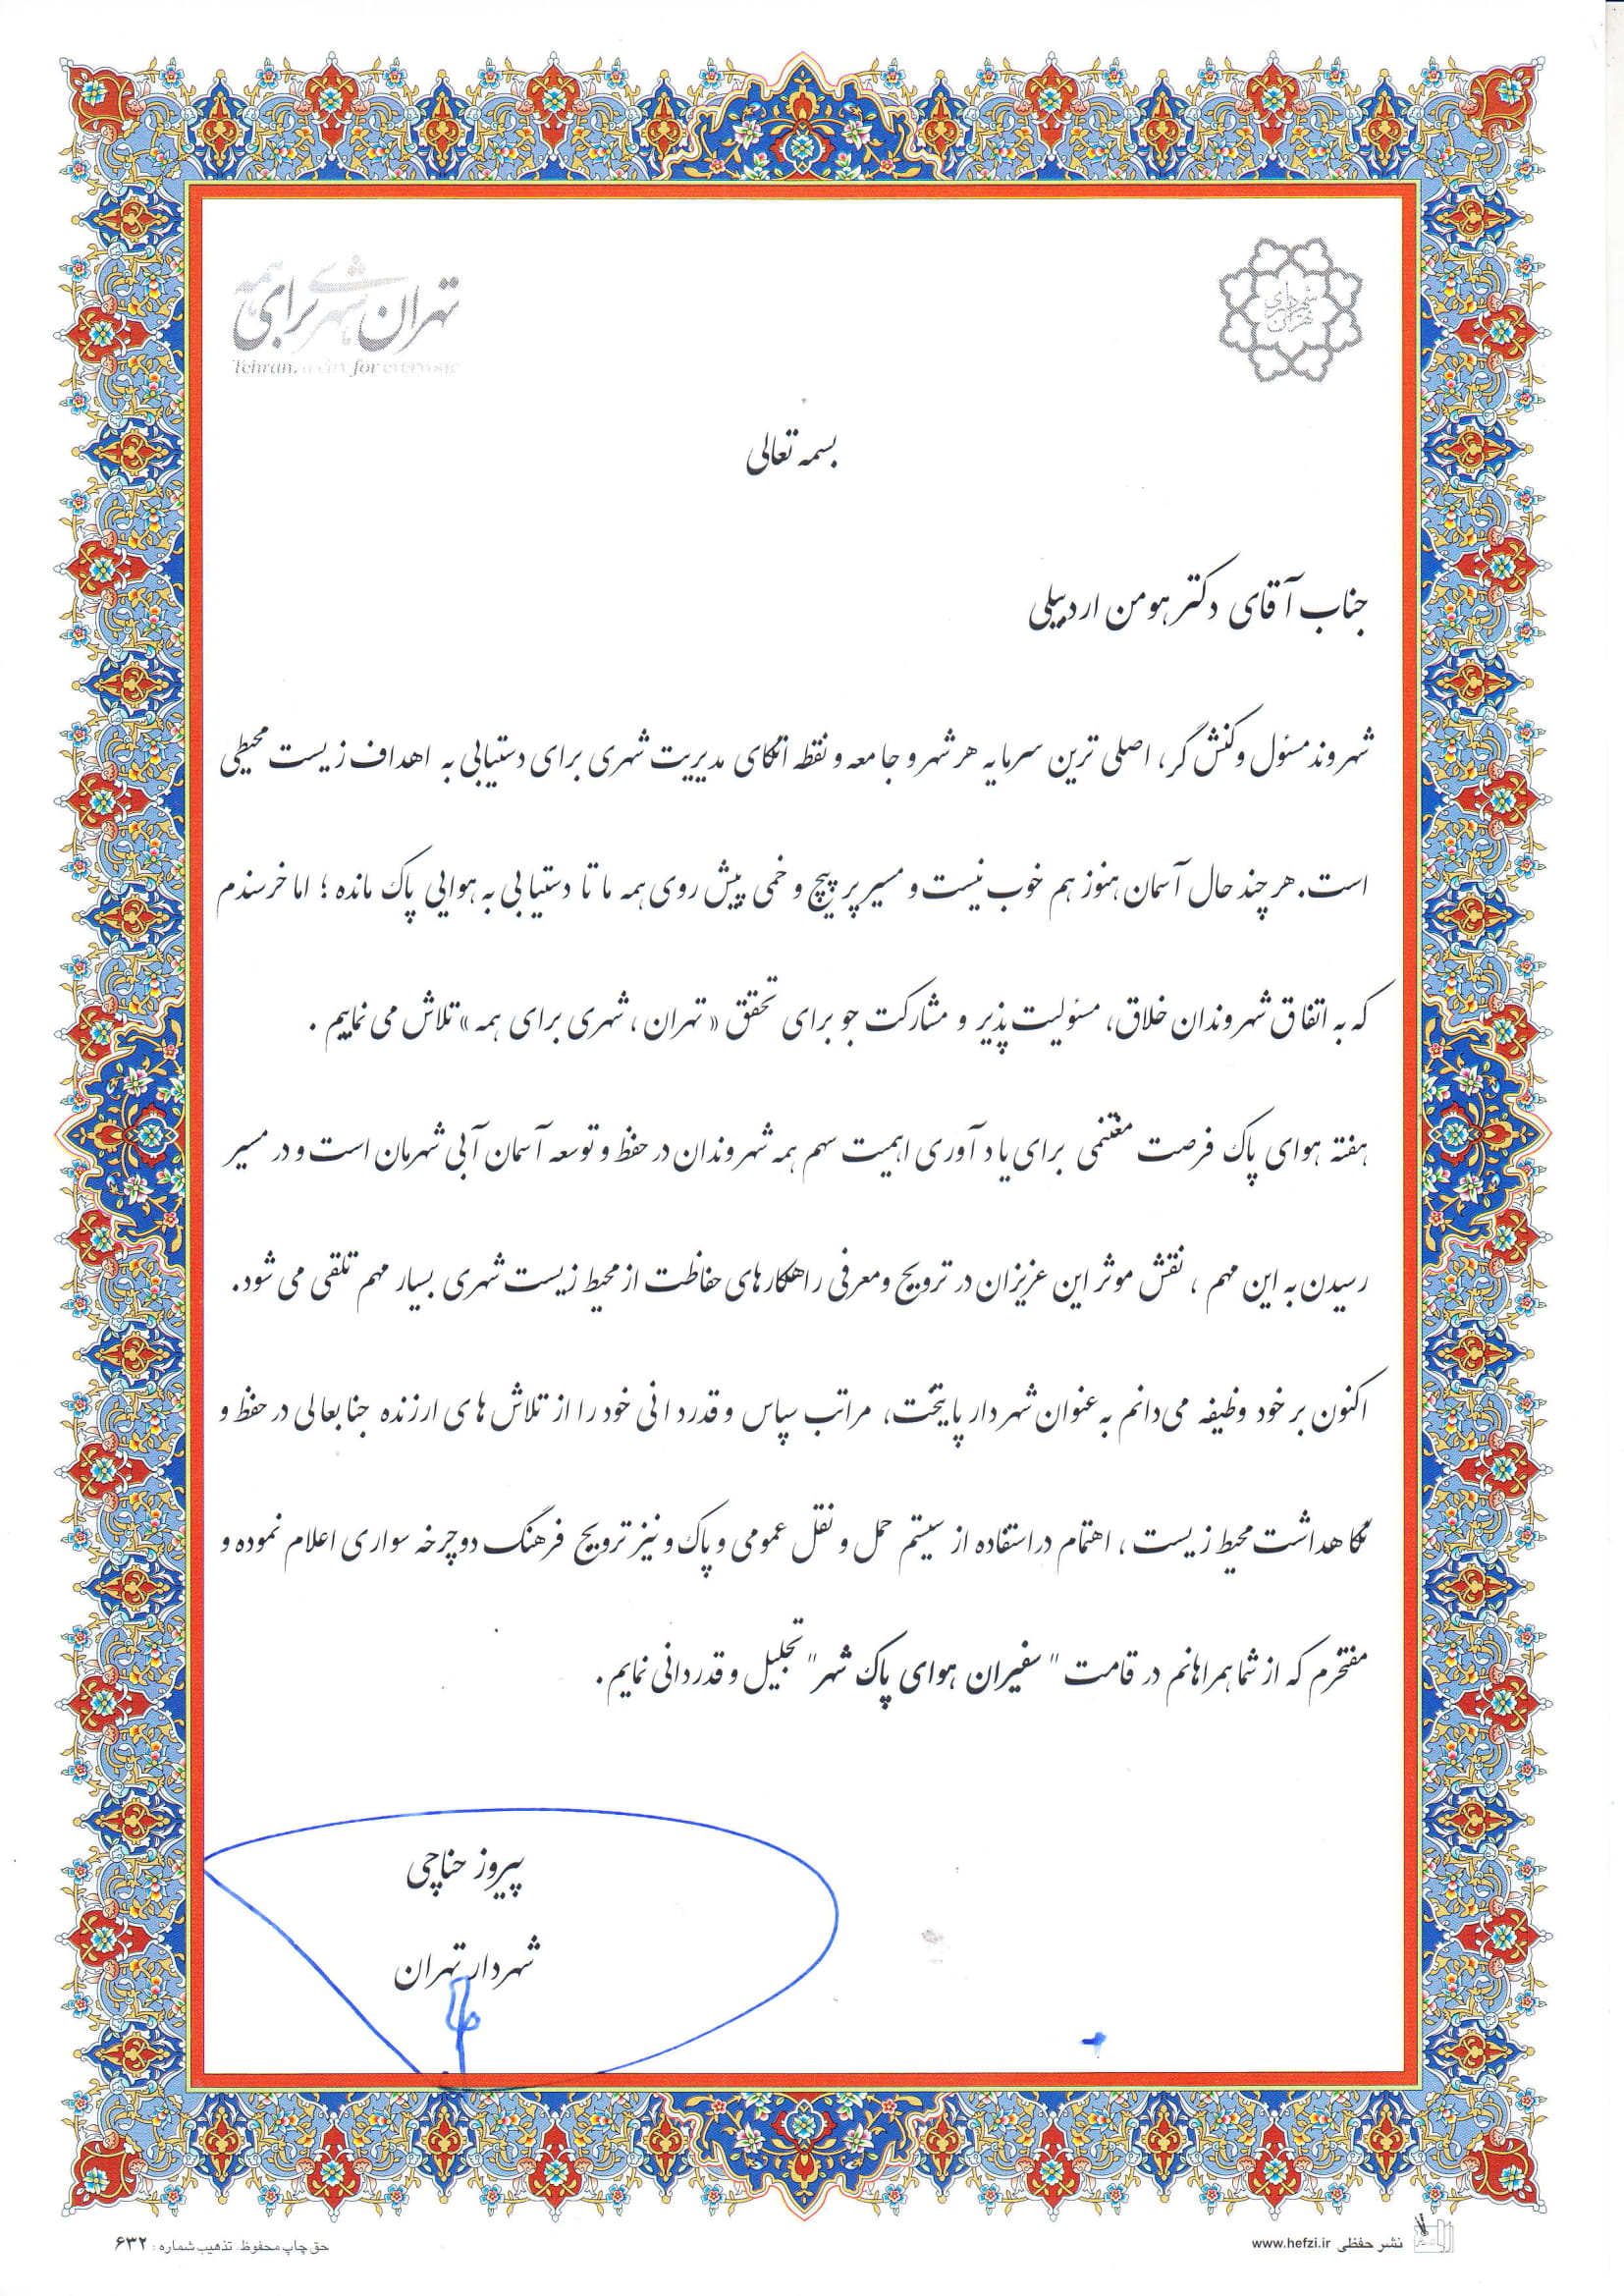 شهرداری تهران
تهران شهری برای همه
Tehran, a city for everyone
بسمه تعالی
جناب آقای دکتر هومن اردبیلی
شهروند مسئول و کنش گر، اصلی ترین سرمایه هر شهر و جامعه و نقطه اتکای مدیریت شهری برای دستیابی به اهداف زیست محیطی
است. هر چند حال آسمان هنوز هم خوب نیست و مسیر پر پیچ و خمی پیش روی همه ما تا دستیابی به هوایی پاک مانده ؛ اما خرسندم
که به اتفاق شهروندان خلاق، مسئولیت پذیر و مشارکت جو برای تحقق « تهران ، شهری برای همه » تلاش می نماییم .
هفته هوای پاک فرصت مغتنمی برای یاد آوری اهمیت سهم همه شهروندان در حفظ و توسعه آسمان آبی شهرمان است و در مسیر
رسیدن به این مهم ، نقش موثر این عزیزان در ترویج ومعرفی راهکارهای حفاظت از محیط زیست شهری بسیار مهم تلقی می شود.
اکنون بر خود وظیفه می دانم به عنوان شهردار پایتخت، مراتب سپاس و قدردانی خود را از تلاش های ارزنده جنابعالی در حفظ و
نگاهداشت محیط زیست ، اهتمام در استفاده از سیستم حمل و نقل عمومی و پاک و نیز ترویج فرهنگ دوچرخه سواری اعلام نموده و
مفتخرم که از شما همراهانم در قامت " سفیران هوای پاک شهر" تجلیل و قدردانی نمایم .
پیروز حناچی
شهردار تهران
نشر حفظی www.hefzi.ir
حق چاپ محفوظ. تذهیب شماره : ۶۳۲